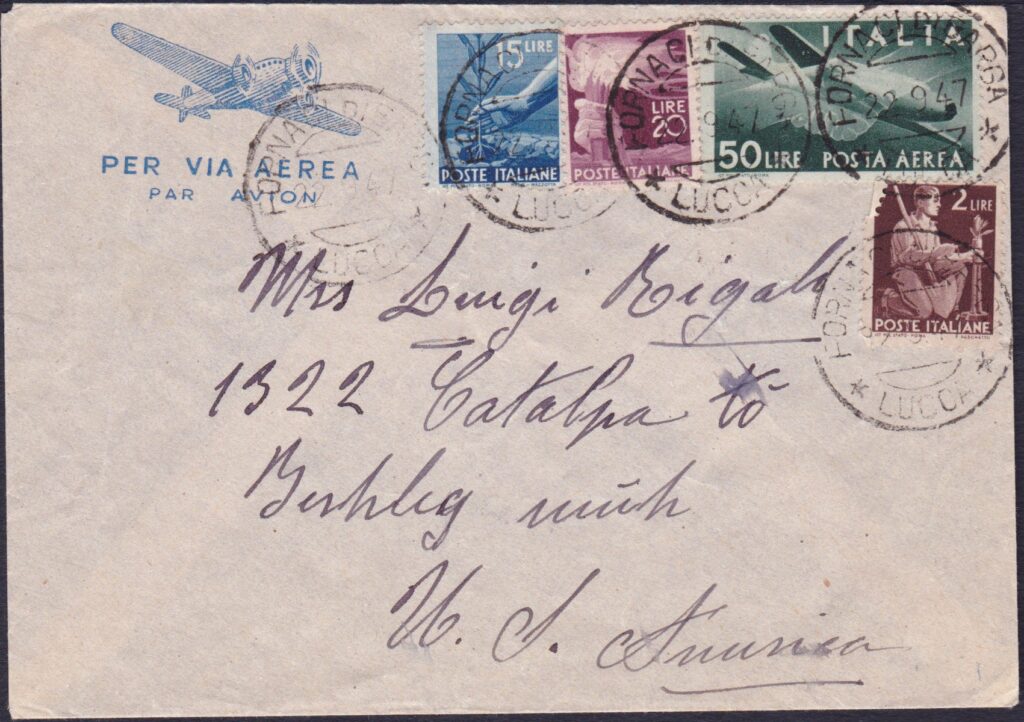 PER VIA AEREA
PAR AVION
15 LIRE
POSTE ITALIANE
LIRE
20
POSTE ITALIANE
ITALIA
50 LIRE POSTA AEREA
2 LIRE
POSTE ITALIANE
FORNACI DI BARGA
22.9.47
LUCCA
FORNACI DI BARGA
LUCCA
FORNACI DI BARGA
LUCCA
FORNACI DI BARGA
22.9.47
LUCCA
Mrs Luigi Rigali
1322 Catalpa
Berhleg mich
U. S. America